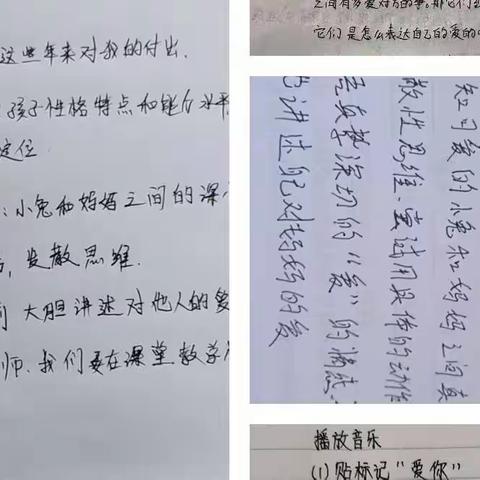 这些年来对我的付出.
孩子性格特点和能力水平
定位.
:小兔和妈妈之间的深
,发散思维.
大胆讲述对他人的爱
师.我们要在课堂教学
之间有多爱对方的事。那它们
它们是怎么表达自己的爱的
知可爱的小兔和妈妈之间真
散性思维.尝试用具体的动作
真挚深切的“爱”的情感.
讲述自己对妈妈的爱
播放音乐
(1)贴标记“爱你”